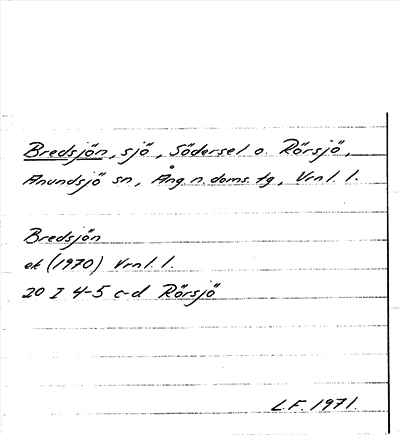 Bredsjön, sjö, Södersel o. Rörsjö,
Anundsjö sn, Ång n. doms. tg, Vrnl. l.
Bredsjön
ek (1970) Vrnl. l.
20 I 4-5 c-d Rörsjö
L.F. 1971.